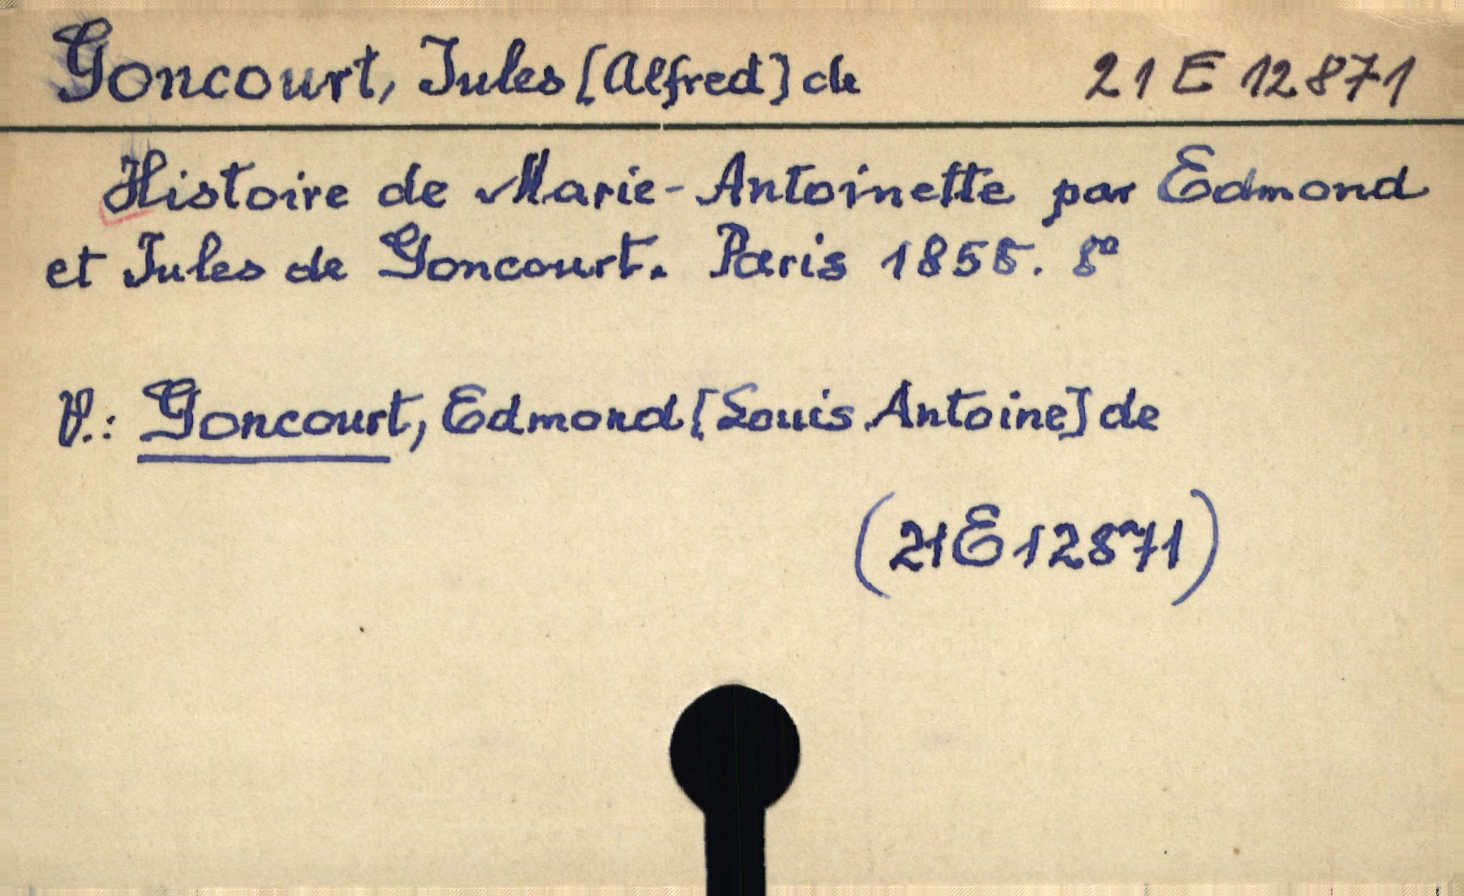 Goncourt, Jules [Alfred] de 21 E 12871
Histoire de Marie-Antoinette par Edmond
et Jules de Goncourt. Paris 1858. 8º
V.: Goncourt, Edmond [Louis Antoine] de
(21 E 12871)